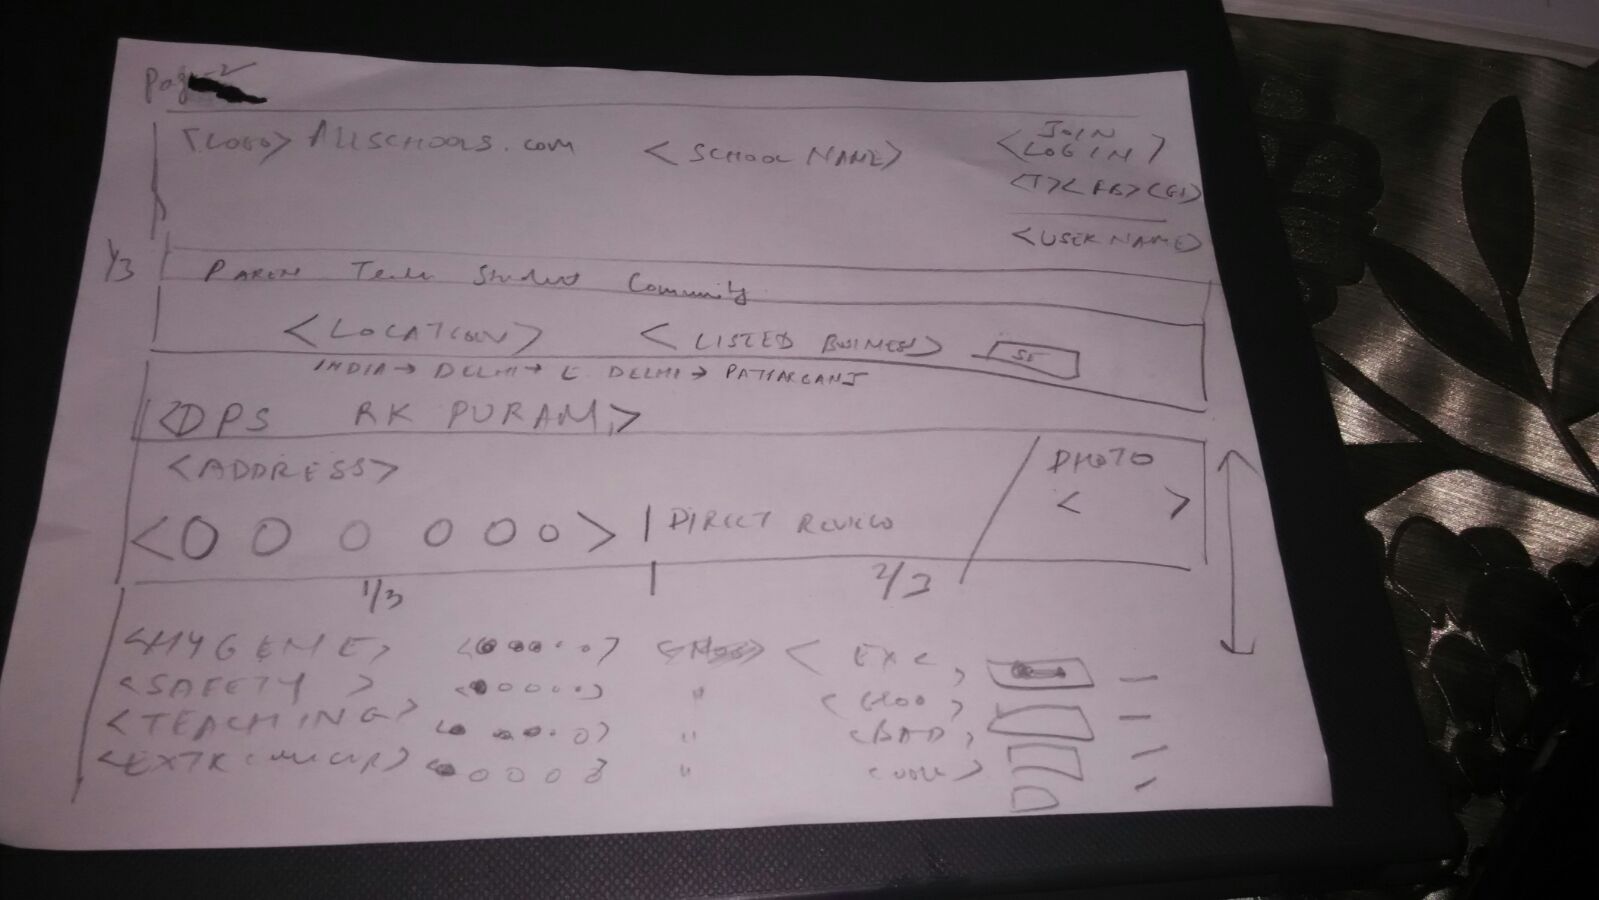 Page-2
<LOGO> AllSCHOOLS.com <SCHOOL NAME> <JOIN LOGIN>
<T><FB><G+>
<USER NAME>
1/3
Student Community
<LOCATION> <LISTED BUSINESS>
INDIA → DELHI → E. DELHI → PATPARGANJ
<DPS RK PURAM>
<ADDRESS> PHOTO
< >
<O O O O O O> | DIRECT REVIEW
1/3 2/3
<HYGENE> < EXC,
<SAFETY > " < GOO ,
<TEACHING> " <BAD,
"